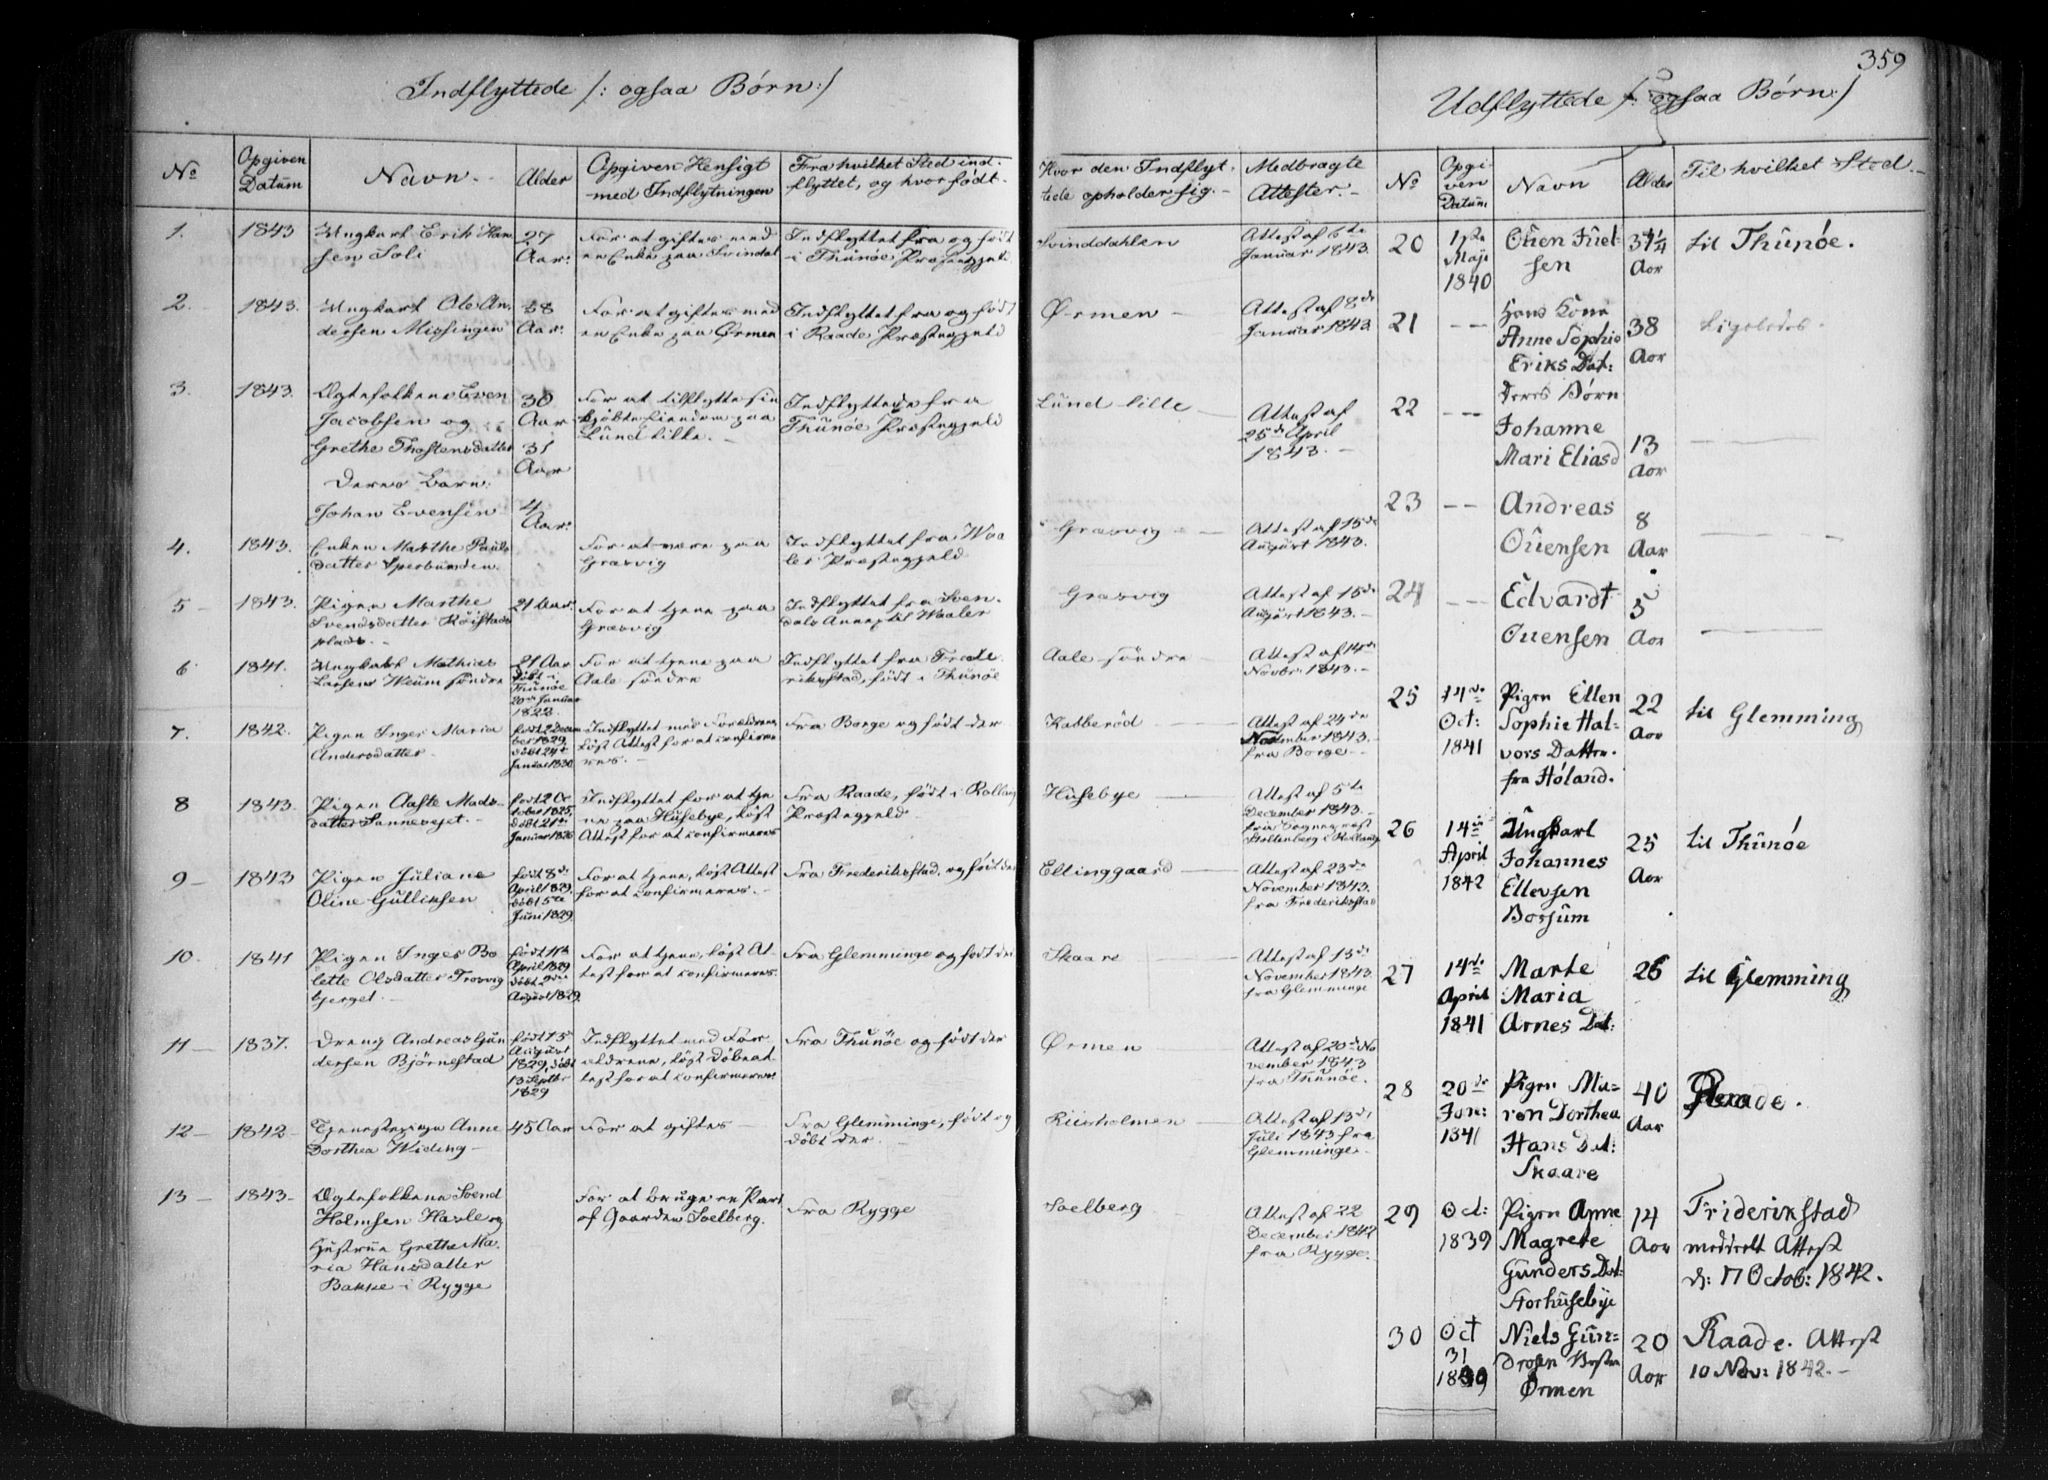 359
Indflyttede /: ogsaa Børn :/
No
Opgiven Datum
Navn.
Alder
Opgiven Hensigt med Indflytningen
Fra hvilket Sted indflyttet, og hvor født.
Hvor den Indflyttede opholder sig.
Medbragte Attester.
1. 1843 Ungkarl Erik Han-
sen Soli
27
Aar.
For at giftes med
en Enke paa Svindal
Indflyttet fra og født
i Thunøe Præstegjeld.
Svinddahlen
Attest af 6te
Januar 1843.
2. 1843. Ungkarl Ole An-
dersen Missingen
38
Aar.
For at giftes med
en Enke paa Ørmen
Indflyttet fra og født
i Raade Præstegjeld
Ørmen
Attest af 8de
Januar 1843
3. 1843. Ægtefolkene Even
Jacobsen og
Grethe Thostensdatter
Deres Barn:
Johan Evensen
30
Aar
31
Aar
4
Aar.
For at tilflytte sin
kjøbte Eiendom paa
Lund lille.
Indflyttede fra
Thunøe Præstegjeld
Lund lille
Attest af
25de April
1843.
4. 1843. Enken Marthe Pauls
datter Sperbunden.
For at være paa
Græsvig
Indflyttet fra Waa
ler Præstegjeld
Græsvig
Attest af 15de
August 1843.
5 1843. Pigen Marthe
Svendsdatter Röistads
plads.
21 Aar.
For at tjene paa
Græsvig
Indflyttet fra Sven-
dals Annex til Waaler
Græsvig
Attest af 15de
August 1843.
6 1841. Ungkarl Mathias
Larsen Weum söndre
21 Aar
født i
Thunöe
20de Januar
1822.
For at tjene paa
Aale söndre
Indflyttet fra Frede
rikstad, født i Thunöe
Aale söndre
Attest af 14de
Novbr. 1843.
7. 1842. Pigen Inger Maria
Andersdatter
født 2 Decem
ber 1829,
döbt 24de
Januar 1830
Indflyttet med Forældrene,
löst Attest for at confirme
res.
Fra Borge og født der
Katberöd
Attest af 24de
November 1843.
fra Borge
8 1843. Pigen Aaste Mads-
datter Sannevejet.
født 2 Oc
tober 1825,
döbt 21de
Januar 1826
Indflyttet for at tje
ne paa Huseby, löst
Attest for at confirmeres
Fra Raade, født i Rollaug
Præstegjeld
Husebye
Attest af 5te
December 1843.
fra Sogneprest
Stoltenberg i Rollaug
9 1843 Pigen Juliane
Oline Gulliksen
født 8de
April 1829,
döbt 5te
Juni 1829
For at tjene, löst Attest
for at confirmeres.
Fra Frederiksstad, og født der
Ellinggaard
Attest af 23de
November 1843.
fra Frederiksstad
10. 1841 Pigen Inger Bo
lette Olsdatter Trosvig
bjerget.
født 11te
April 1829
döbt 2den
August 1829
For at tjene, löst At-
test for at confirmeres.
Fra Glemminge og født der
Skaare
Attest af 13de
November 1843
fra Glemminge
11 1837. Dreng Andreas Gun
dersen Björnstad
født 15de
August
1829, döbt
13 Septbr
1829
Indflyttet med For
ældrene, löst Döbeat
test for at confirmeres.
Fra Thunöe og født der
Ørmen
Attest af 20de No
vember 1843
fra Thunöe.
12 1842 Tjenestepige Anne
Dorthea Widing
45 Aar
For at giftes
Fra Glemminge, født og
döbt der.
Riisholmen
Attest af 13de
Juli 1843 fra
Glemminge.
13 1843. Ægtefolkene Svend
Holmsen Havle og
Hustrue Grethe Ma-
ria Hansdatter
Bakke i Rygge
For at bruge en Part
af Gaarden Soelberg.
Fra Rygge
Soelberg
Attest af 22
December 1842
fra Rygge.
Udflyttede /: ogsaa Børn :/
No
Opgiven Datum
Navn
Alder
Til hvilket Sted.
20 1ste
Maji
1840
Ouen Juel-
sen
37¼
Aar
til Thunøe.
21 Hans Kone
Anne Sophie
Eriks Dat:
38
Aar
Ligeledes.
22 Deres Børn
Johanne
Mari Eliasd
13
Aar
23 Andreas
Ouensen
8
Aar
24 Edvardt
Ouensen
5
Aar
25 14de
Oct:
1841
Pigen Ellen
Sophie Hal-
vors Datter
fra Høland.
22
Aar
til Glemming
26 14de
April
1842
Ungkarl
Johannes
Ellevsen
Bossum
25
Aar
til Thunøe
27 14de
April
1841
Marte
Maria
Arnes Dat:
26
til Glemming
28 20de
Jan:
1841
Pigen Ma-
ren Dorthea
Hans Dat:
Skaare
40
Aar
Raade.
29 Oct:
1839
Pigen Anne
Magrete
Gunders Dat:
Storhusebye
14
Aar
Friderikstad
meddeelt Attest
d: 17 Octob: 1842.
30 Oct
31
1839
Niels Gun-
dersen Vestre
Ørmen
20
Aar
Raade. Attest
10 Nov: 1842.